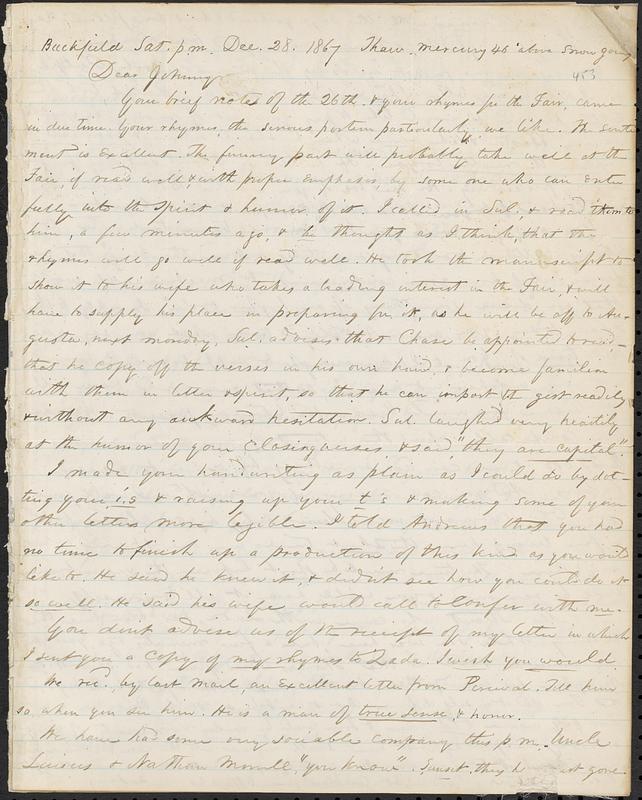 Buckfield Sat. p.m. Dec. 28. 1867 Thaw. mercury 46° above snow going
453
Dear Johnny
Your brief notes of the 26th. & your rhymes for the Fair, came
in due time. Your rhymes, the serious portion particularly, we like. The senti-
ment is excellent. The funny part will probably take well at the
Fair, if read well & with proper emphasis, by some one who can enter
fully into the spirit & humor of it. I called in Sul. & read them to
him, a few minutes ago, & he thought as I think, that the
rhymes will go well if read well. He took the manuscript to
show it to his wife who takes a leading interest in the Fair, & will
have to supply his place in preparing for it, as he will be off to Au-
gusta, next monday. Sul. advises that Chase be appointed to read,-
that he copy off the verses in his own hand, & become familiar
with them in letter & spirit, so that he can impart the gist readily
& without any awkward hesitation. Sul. laughed very heartily
at the humor of your closing verses, & said, "they are capital".
I made your handwriting as plain as I could do by dot-
ting your i's & raising up your t's & making some of your
other letters more legible. I told Andrews that you had
no time to finish up a production of this kind as you would
like to. He said he knew it, & didn't see how you could do it
so well. He said his wife would call to confer with me.
You dont advise us of the receipt of my letter in which
I sent you a copy of my rhymes to Zada. I wish you would.
We rec. by last mail, an excellent letter from Percival. Tell him
so when you see him. He is a man of true sense, & honor.
We have had some very sociable company this p.m. Uncle
Lucius & Nathan Morrill, "you know". Sunset. they just gone